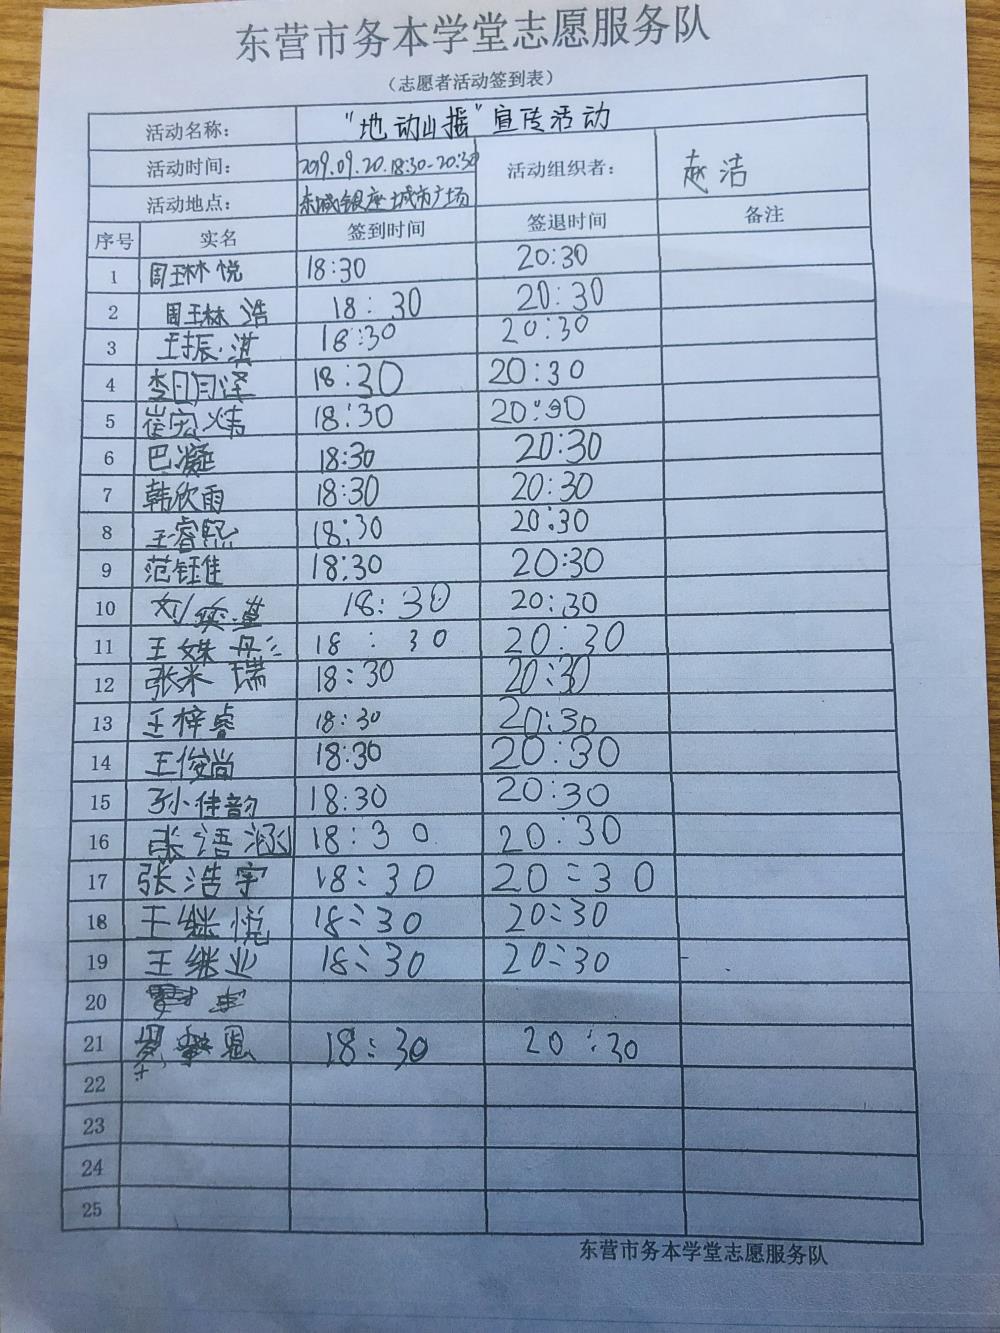 东营市务本学堂志愿服务队
（志愿者活动签到表）
活动名称： "地动山摇"宣传活动
活动时间： 2019.09.20.18:30-20:30 活动组织者： 赵洁
活动地点： 东城银座城市广场
序号 实名 签到时间 签退时间 备注
1 周玉林悦 18:30 20:30
2 周玉林浩 18:30 20:30
3 王振淇 18:30 20:30
4 李明泽 18:30 20:30
5 崔宏炜 18:30 20:30
6 巴凝 18:30 20:30
7 韩欣雨 18:30 20:30
8 王睿熙 18:30 20:30
9 范钰佳 18:30 20:30
10 刘 18:30 20:30
11 王姝丹 18:30 20:30
12 张米瑞 18:30 20:30
13 王梓睿 18:30 20:30
14 王俊尚 18:30 20:30
15 孙佳韵 18:30 20:30
16 张语涵 18:30 20:30
17 张浩宇 18:30 20:30
18 王继悦 18:30 20:30
19 王继业 18:30 20:30
20
21 恩 18:30 20:30
22
23
24
25
东营市务本学堂志愿服务队